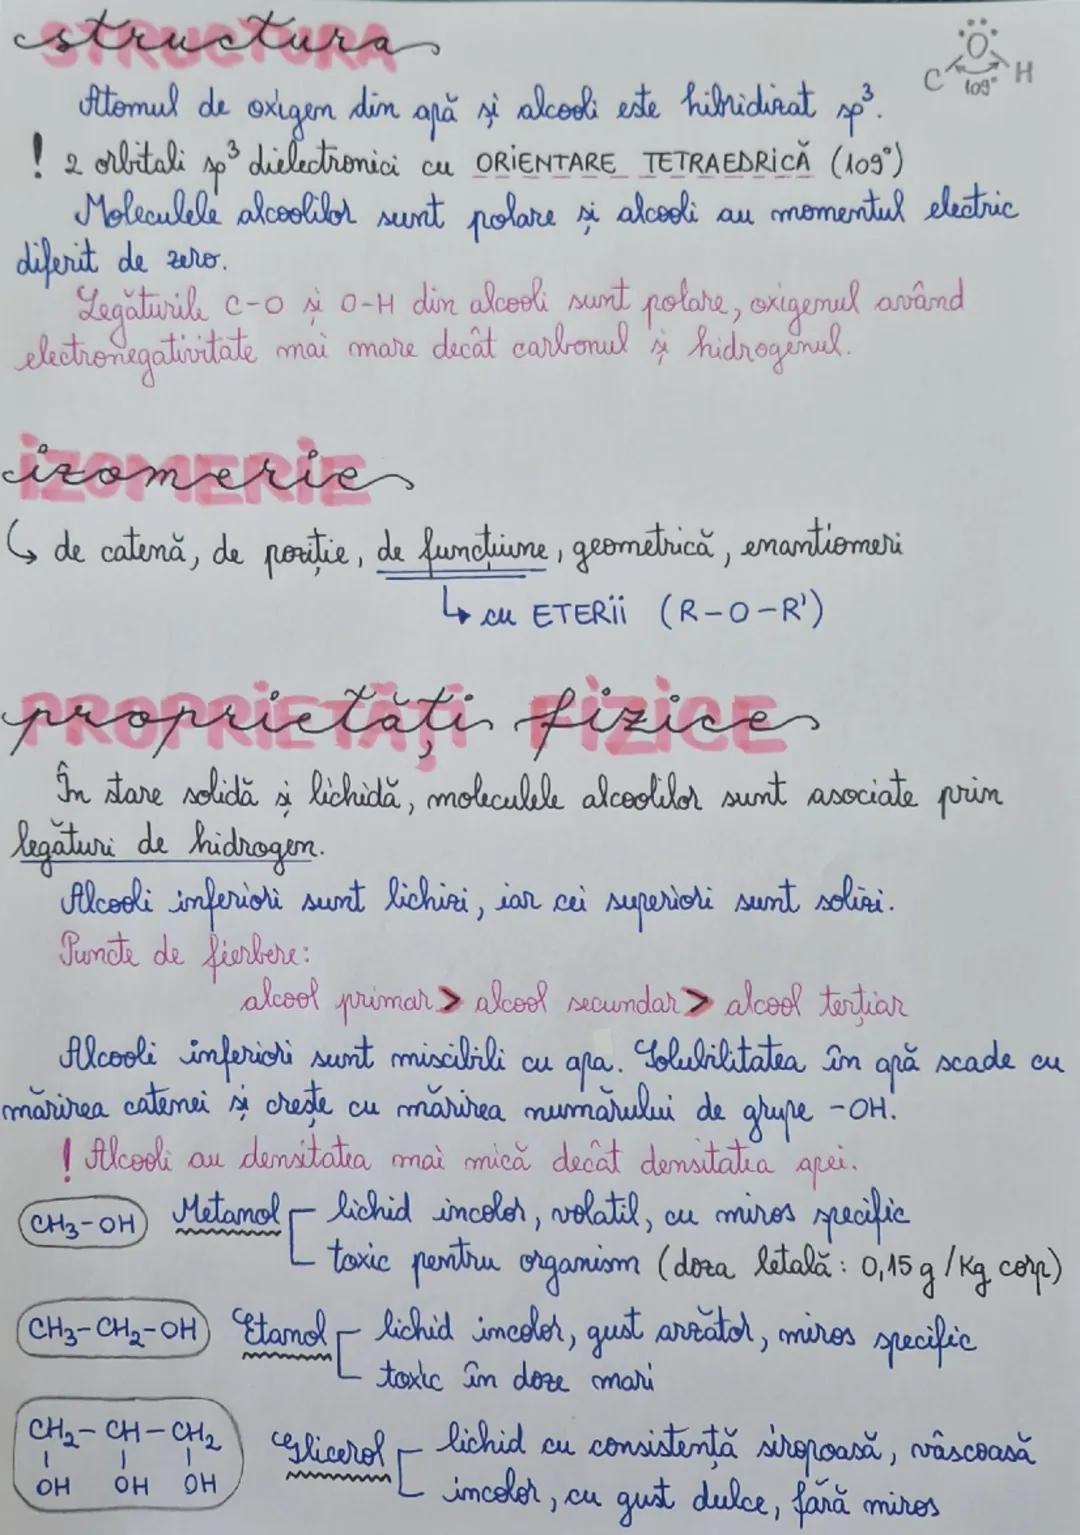 structura
STRUCTURA
O
C 109° H
Atomul de oxigen din apă și alcooli este hibridizat sp³.
! 2 orbitali sp³ dielectronici cu ORIENTARE TETRAEDRICĂ (109°)
Moleculele alcoolilor sunt polare și alcooli au momentul electric
diferit de zero.
Legăturile C-O și O-H din alcooli sunt polare, oxigenul având
electronegativitate mai mare decât carbonul și hidrogenul.
izomerie
IZOMERIE
↳ de catenă, de poziție, de funcțiune, geometrică, enantiomeri
↳ cu ETERII (R-O-R')
proprietăți fizice
PROPRIETĂȚI FIZICE
În stare solidă și lichidă, moleculele alcoolilor sunt asociate prin
legături de hidrogen.
Alcooli inferiori sunt lichizi, iar cei superiori sunt solizi.
Puncte de fierbere:
alcool primar > alcool secundar > alcool terțiar
Alcooli inferiori sunt miscibili cu apa. Solubilitatea în apă scade cu
mărirea catenei și crește cu mărirea numărului de grupe -OH.
! Alcooli au densitatea mai mică decât densitatea apei.
CH3-OH Metanol lichid incolor, volatil, cu miros specific
toxic pentru organism (doza letală: 0,15 g/Kg corp)
CH3-CH2-OH Etanol lichid incolor, gust arzător, miros specific
toxic în doze mari
CH2-CH-CH2 Glicerol lichid cu consistență siropoasă, vâscoasă
OH OH OH incolor, cu gust dulce, fără miros